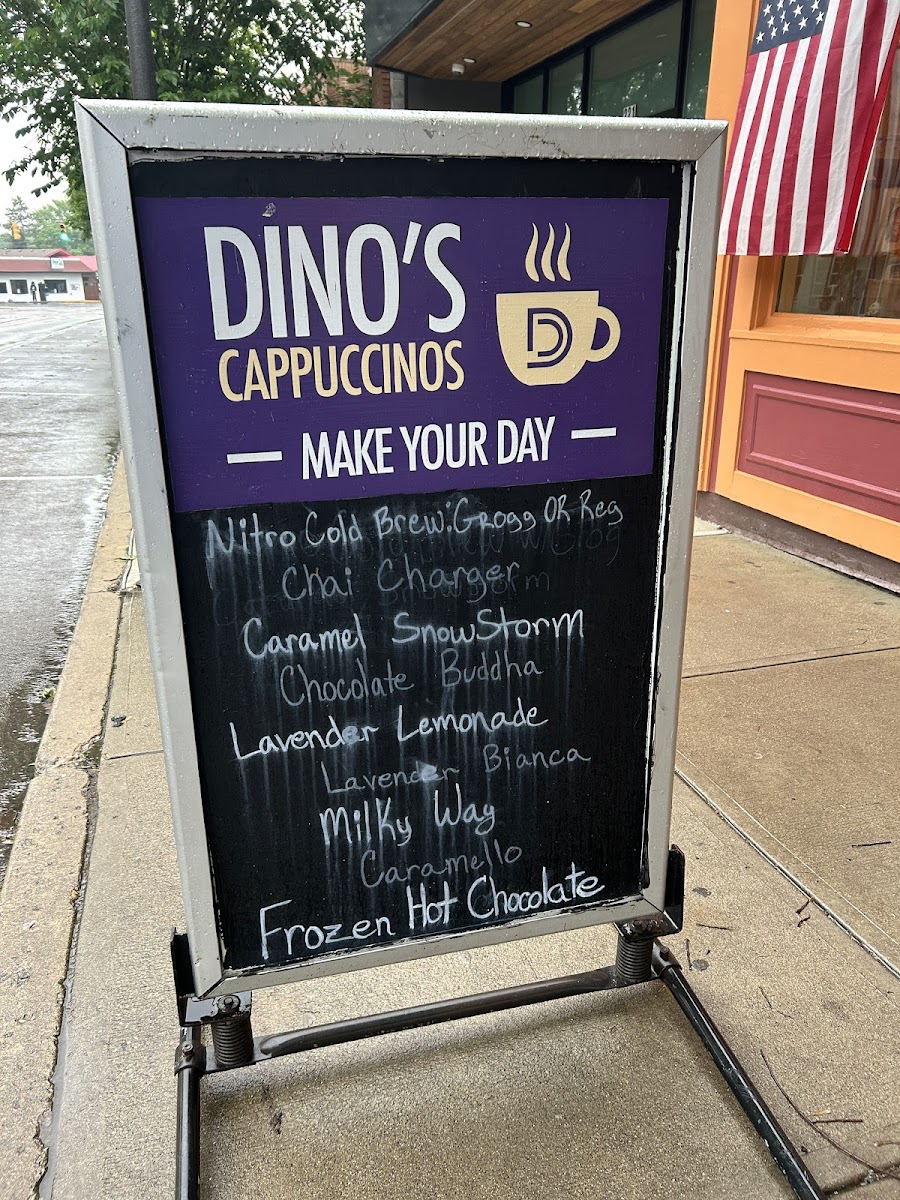 DINO'S
CAPPUCCINOS
D
— MAKE YOUR DAY —
Nitro Cold Brew: Grogg OR Reg
Chai Charger
Caramel SnowStorm
Chocolate Buddha
Lavender Lemonade
Lavender Bianca
Milky Way
Caramello
Frozen Hot Chocolate